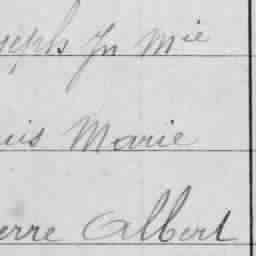 seph Jn Mie
uis Marie
erre Albert